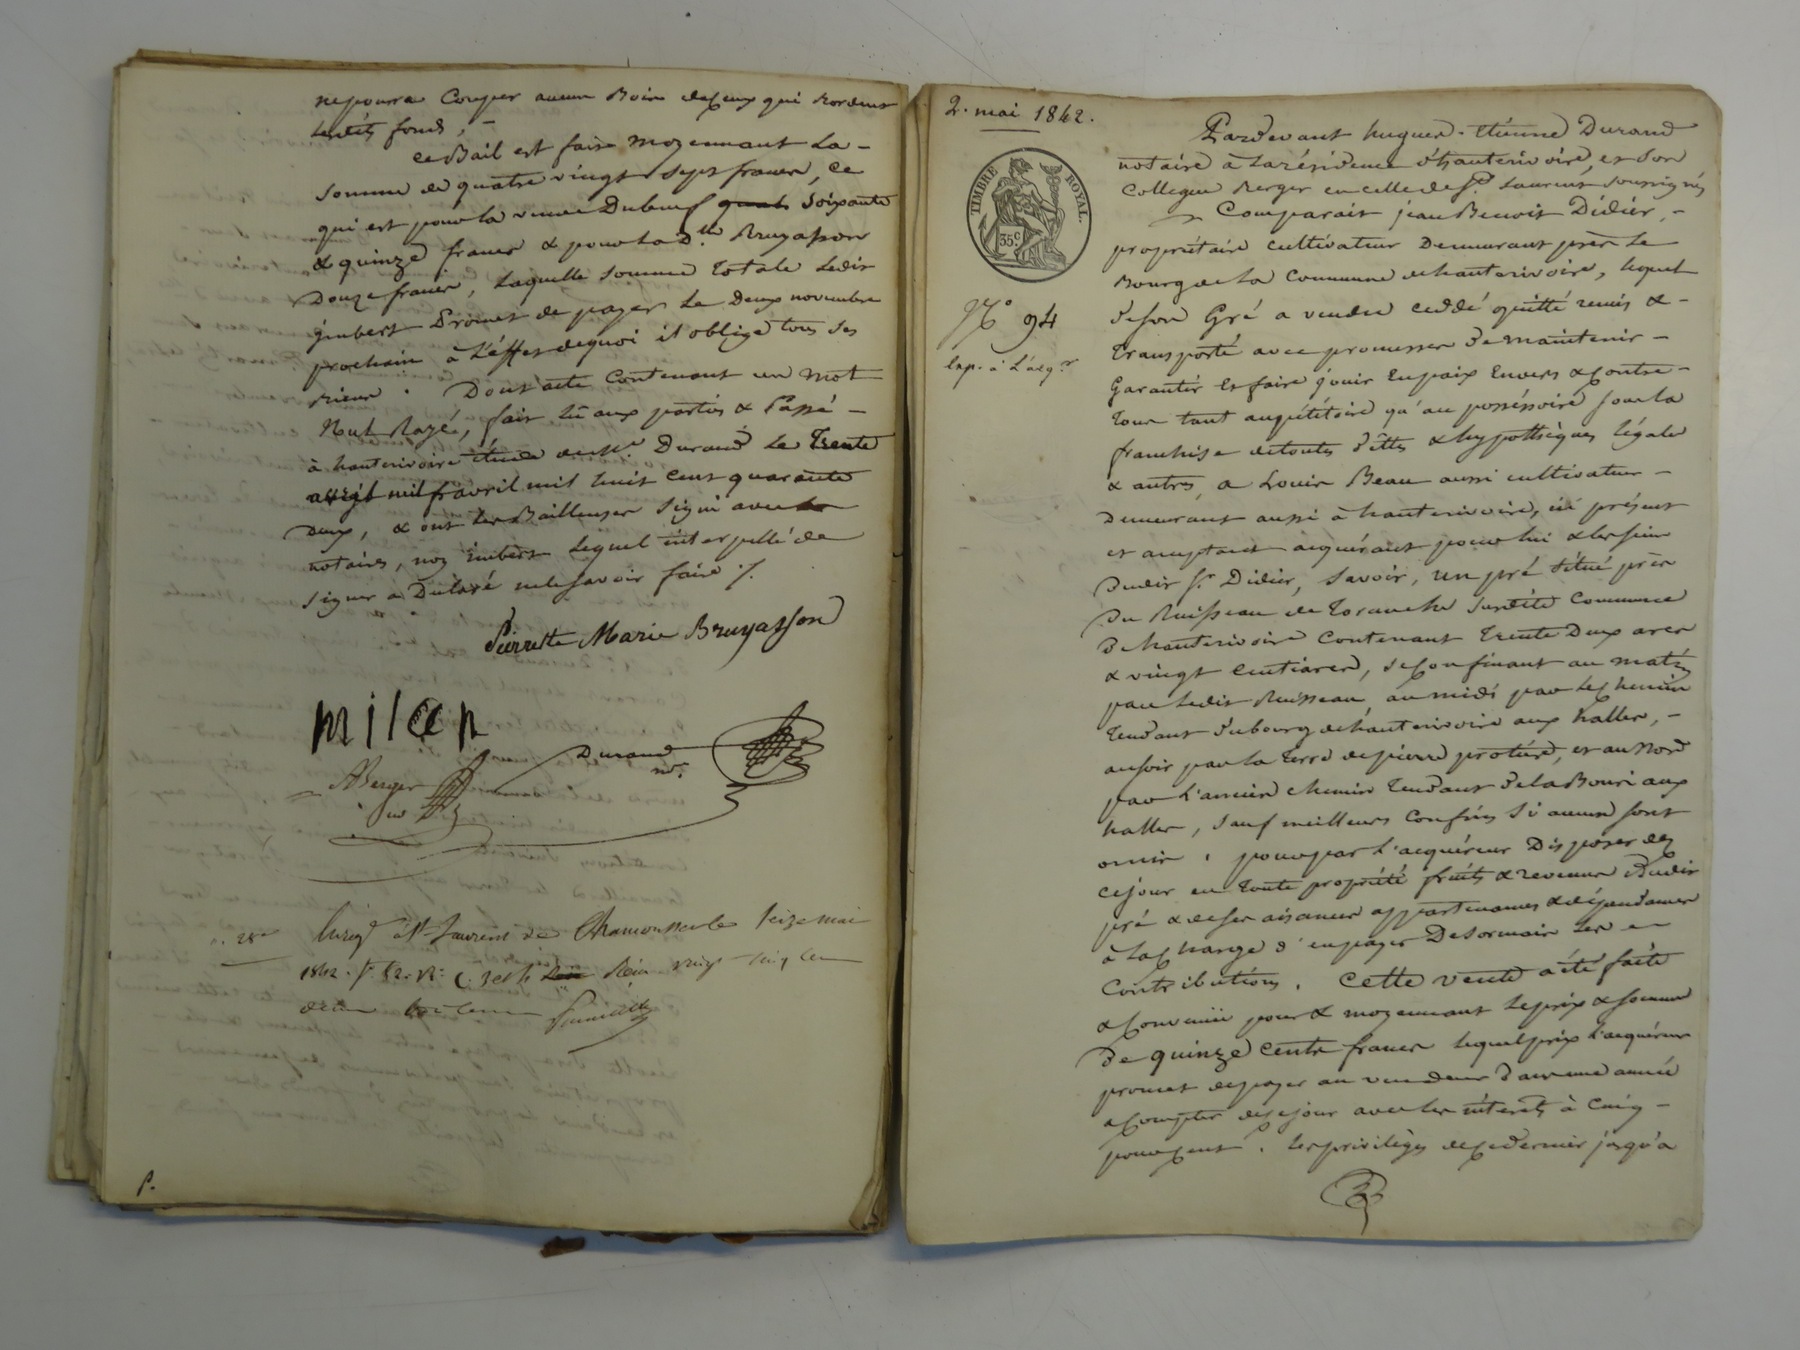 ne pourra Couper aucun Bois de Ceux qui bordent
lesdits fonds, -
Ce Bail est fait moyennant La -
Somme de quatre vingt sept francs, Ce
qui est pour la veuve Dubeuf quat Soixante
& quinze francs & pour la dlle Bruyasson
Douze francs, laquelle somme totale Ledit
jmbert Promet de payer le Deux novembre
prochain à L'effet de quoi il oblige tous ses
biens. Dont acte Contenant un mot
Nul Rayé, fait lu aux parties & Passé -
à hauterivoire étude de Me Durand Le Trente
avril mil huit cent quarante
Deux, & ont les Bailleuses Signé avec les
notaires, non imbert lequel interpellé de
signer a Déclaré ne le savoir faire ./.
Pierrette Marie Bruyasson
milan
Durand
nre
ABerger
28e Enregé à St Laurent de Chamousset le seize mai
1842. fo 82. Ro C. 3 et 4 Reçu vingt cinq cen
P.
2. mai 1842.
TIMBRE ROYAL.
35c
No 94
Exp. à L'acqr
Pardevant hugues-Etienne Durand
notaire à La résidence d'hauterivoire, et son
Collegue Berger en celle de St Laurent soussignés
Comparait jean Benoit Didier, -
propriétaire cultivateur Demeurant près Le
Bourg de La Commune de hauterivoire, lequel
de son Gré a vendu ceddé quitté remis & -
Transporté avec promesse de maintenir -
Garantir et faire jouir En paix Envers & Contre -
Tous tant au pétitoire qu'au posséssoire sous la
franchise de toutes dettes & hypothèques légale
& autres, a Louis Beau aussi cultivateur -
Demeurant aussi à hauterivoire, ici présent
et acceptant acquérant pour lui & les siens
Dudit Sr Didier, Savoir, un pré situé près
Du Ruisseau de Toranche Susdite Commune
De hauterivoire Contenant Trente Deux ares
& vingt Centiares, se Confinant au matin
par Ledit Ruisseau, au midi par Le Chemin
Tendant du bourg de hauterivoire aux halles, -
au soir par La Terre de pierre protière, et au Nord
par L'ancien chemin Tendant de la Bouri aux
halles, sauf meilleurs Confins Si aucun sont
ouir. pour par L'acquéreur Disposer dez
ce jour en Toute propriété fruits & revenus Dudit
pré & de ses aisances appartenances & dépendances
à La Charge d'en payer Desormais Les -
Contributions. Cette vente a été faite
& Convenue pour & moyennant Le prix & somme
De quinze cents francs lequel prix L'acquéreur
promet de payer au vendeur dans une année
a Compter de ce jour avec les intérêts à Cinq -
pour Cent. Les privilèges de Ce dernier jusqu'a